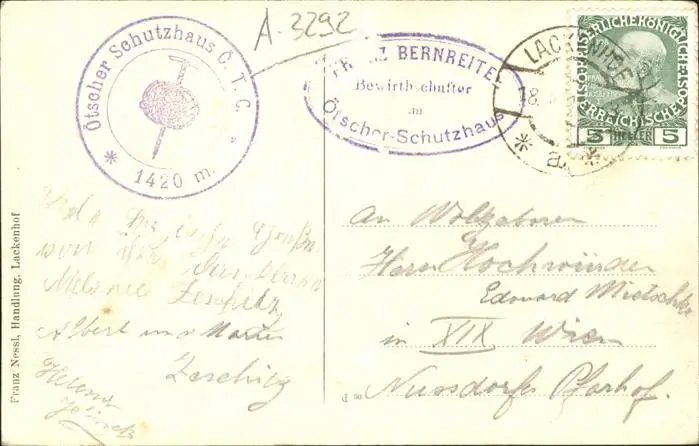 A-3292
Ötscher Schutzhaus Ö.T.C.
* 1420 m. *
FRANZ BERNREITER
Bewirthschafter
im
Ötscher-Schutzhaus
LACKENHOF
8.
* a *
KAISERLICHE KÖNIGLICHE
ÖSTERREICHISCHE POST
5 HELLER 5
von der
Melanie Zeschitz
Albert und Marie
Zeschitz
An Wohlgeboren
Herrn Hochwürden
Edouard Mietschke
in XIX Wien
Nussdorfer Pfarhof.
Franz Nessl, Handlung, Lackenhof
d 50